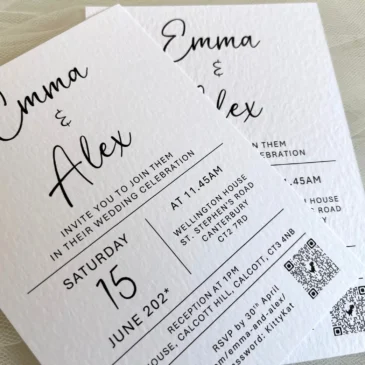 Emma
&
Alex
INVITE YOU TO JOIN THEM
IN THEIR WEDDING CELEBRATION
SATURDAY
15
JUNE 202*
AT 11.45AM
WELLINGTON HOUSE
ST. STEPHEN'S ROAD
CANTERBURY
CT2 7RD
RECEPTION AT 1PM
HOUSE, CALCOTT HILL, CALCOTT, CT3 4NB
RSVP by 30th April
/emma-and-alex/
assword: KittyKat
Emma
&
lex
N THEM
EBRATION
11.45AM
TON HOUSE
'S ROAD
URY